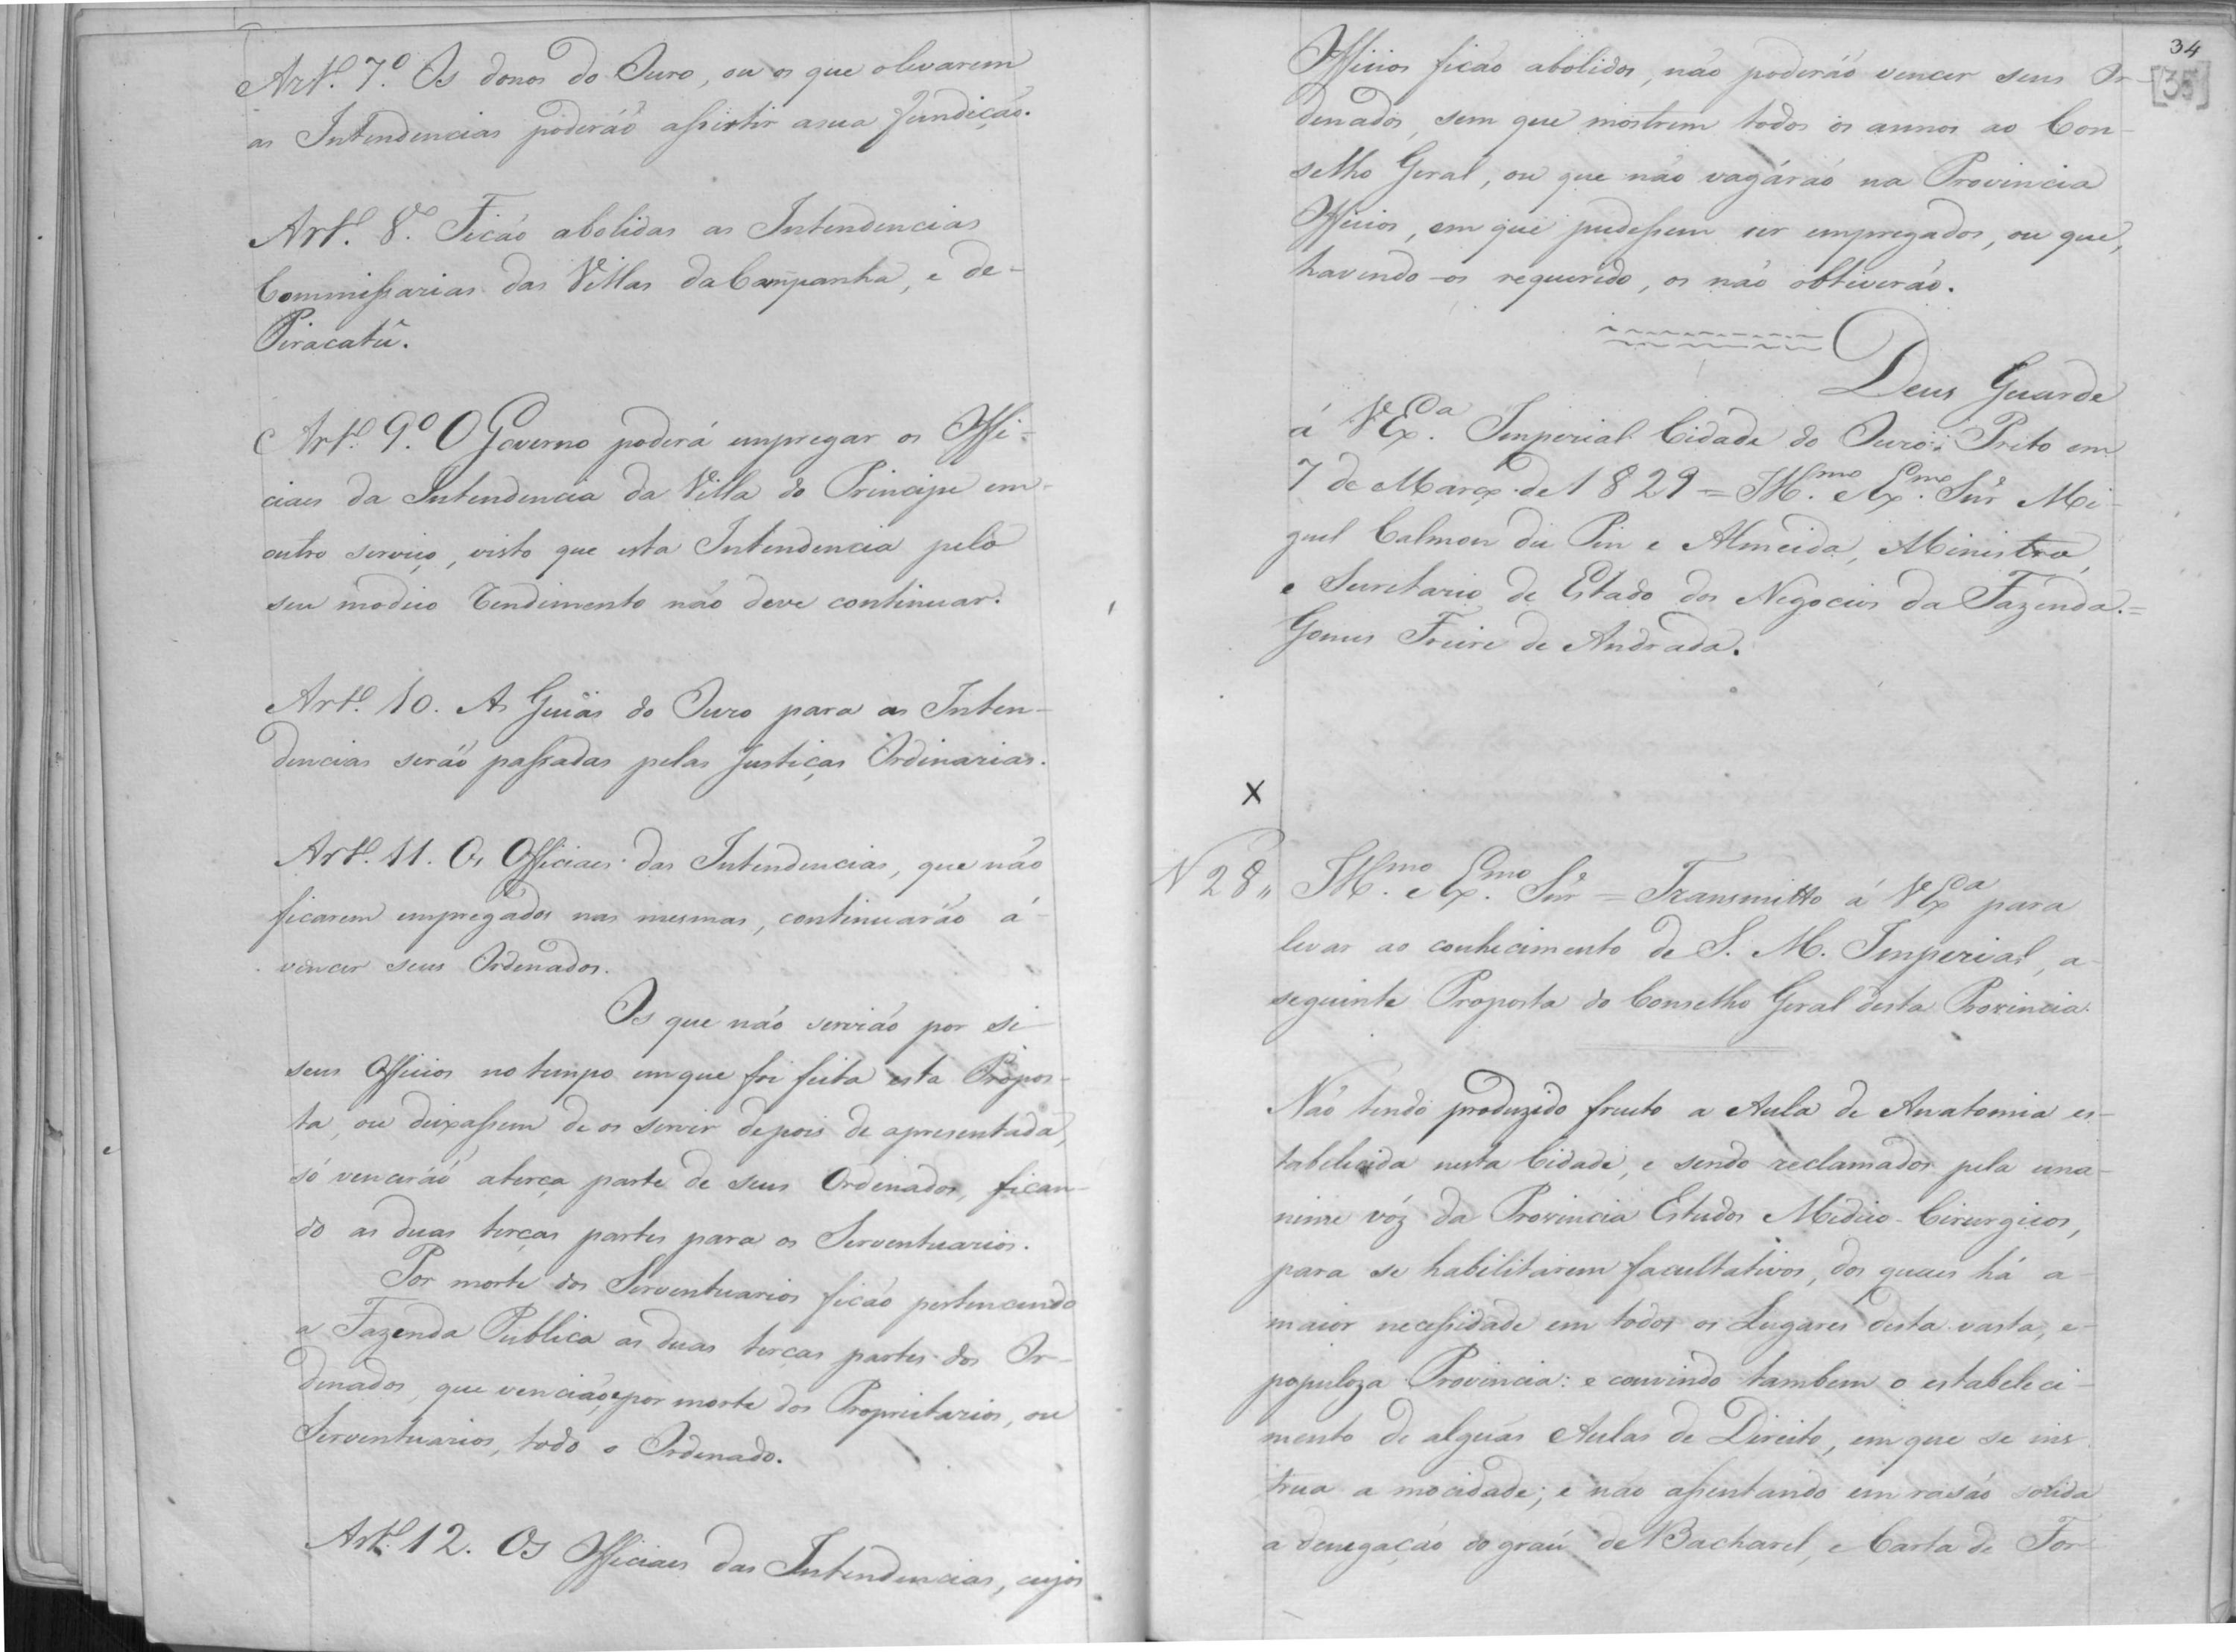 Art.º 7.º Os donos do Ouro, ou os que o levarem
as Intendencias poderáõ assistir asua fundição.
Art.º 8.º Ficáo abolidas as Intendencias
Commissarias das Villas da Campanha, e de-
Piracatû.
Art.º 9.º O Governo poderá empregar os Offi-
ciaes da Intendencia da Villa do Principe em-
outro serviço, visto que esta Intendencia pelo
seu modico Rendimento não deve continuar.
Art.º 10. As Guias do Ouro para as Inten-
dencias seráõ passadas pelas Justiças Ordinarias.
Art.º 11. Os Officiaes das Intendencias, que não
ficarem empregados nas mesmas, continuarão á-
vencer seus Ordenados.
Os que não servião por si-
seus Officios no tempo em que foi feita esta Propos-
ta, ou deixassem de os servir depois de apresentada,
só venceráõ a terça parte de seus Ordenados, fican-
do as duas terças partes para os Serventuarios.
Por morte dos Serventuarios ficáo pertencendo
a Fazenda Publica as duas terças partes dos Or-
denados, que vencião, e por morte dos Proprietarios, ou
Serventuarios, todo o Ordenado.
Art.º 12. Os Officiaes das Intendencias, cujos
34
[35]
Officios ficáo abolidos, não poderáõ vencer seus Or-
denados, sem que mostrem todos os annos ao Con-
selho Geral, ou que não vagáráõ na Provincia
Officios, em que pudessem ser empregados, ou que,
havendo-os requerido, os não obtiverão.
Deus Guarde
á V.Ex.ª Imperial Cidade do Ouro Preto em
7 de Março de 1829 = Ill.mo e Ex.mo Snr. Mi-
guel Calmon du Pin e Almeida, Ministro,
e Secretario de Estado dos Negocios da Fazenda. =
Gomes Freire de Andrada.
X
N 28 „ Ill.mo e Ex.mo Snr. = Transmitto á V.Ex.ª para
levar ao conhecimento de S. M. Imperial, a-
seguinte Proposta do Conselho Geral desta Provincia.
Não tendo produzido fructo a Aula de Anatomia es-
tabelecida nesta Cidade, e sendo reclamados pela una-
nime vóz da Provincia Estudos Medico-Cirurgicos,
para se habilitarem facultativos, dos quaes há a-
maior necessidade em todos os Lugares desta vasta, e-
populoza Provincia: e convindo tambem o estabeleci-
mento de alguãs Aulas de Direito, em que se ins-
trua a mocidade; e não assentando em rasão solida
a denegação do gráu de Bacharel, e Carta de For-